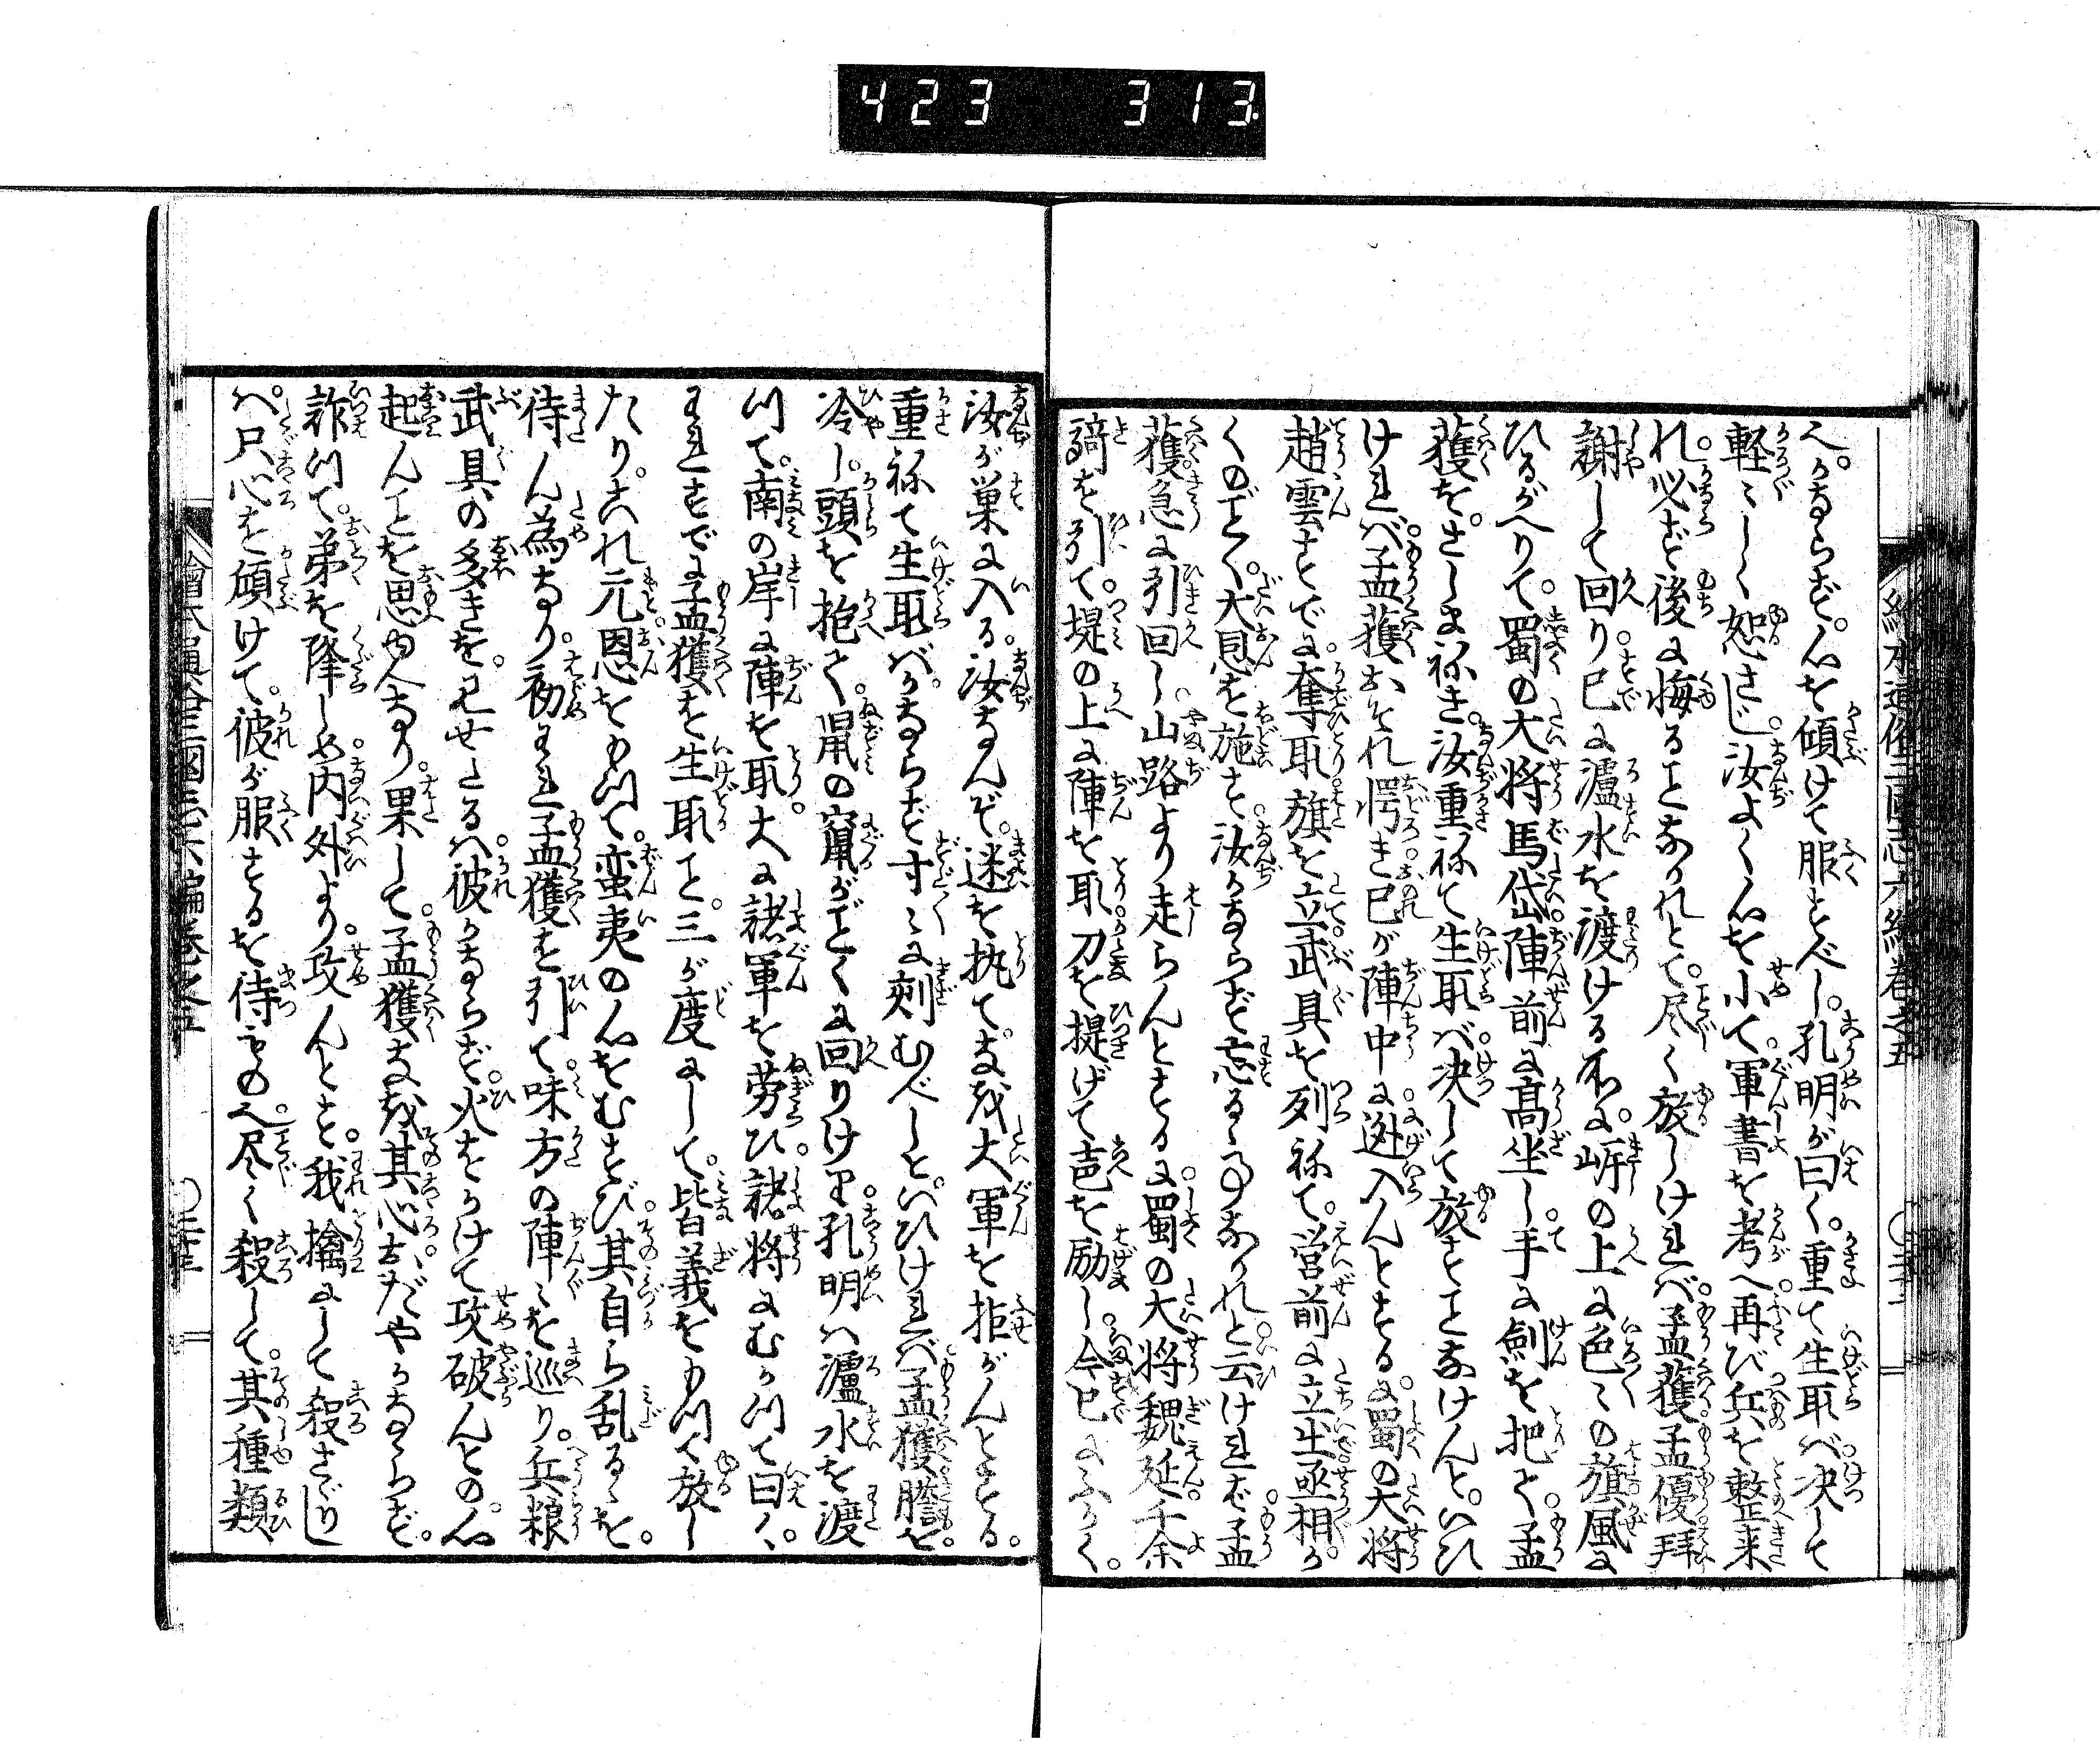 423 313
繪本通俗三國志六編卷之五
へかならず心を傾けて服すべし。孔明が曰く。重て生取バ決して
軽〻しく恕さじ。汝よく心を小て。軍書を考へ再び兵を整来
れ。必ず後に悔ることなかれとて。尽く放しけれバ。孟獲孟優拜
謝して回り。已に瀘水を渡ける不に。岍の上に色〻の旗風に
ひるがへりて。蜀の大将馬岱。陣前に髙坐し。手に劍を把て。孟
獲をさしまねき。汝重ねて生取バ。决して放すことなけんと。いひ
けれバ。孟獲おそれ愕き。已が陣中に逃入んとするに。蜀の大将
趙雲すでに奪取。旗を立。武具を列ねて。営前に立出。丞相か
くのごとく。大恩を施す。汝かならず忘るゝ事なかれと云けれバ。孟
獲急に引回し。山路より走らんとするに。蜀の大将魏延。千余
騎を引て。堤の上に陣を取。刀を提げて声を励し。今已にふかく。
汝が巣に入る。汝なんぞ。迷を执て。なを大軍を拒がんとする。
重ねて生取バ。かならず寸〻に刻むべしと。いひけれバ。孟獲膽を
冷し。頭を抱て。鼠の竄がごとくに回りけり。孔明ハ瀘水を渡
つて。南の岸に陣を取。大に諸軍を労ひ。諸将にむかつて曰く。
われすでに孟獲を生取こと。三が度にして。皆義をもつて放し
たり。これ元恩をもつて。蛮夷の心をむすび。其自ら乱るゝを。
待ん為なり。初われ孟獲を引て。味方の陣〻を巡り。兵粮
武具の多きを。見せたるハ。彼かならず。火をかけて攻破んとの。心
起んことを思ゆへなり。果して孟獲なを其心おだやかならず。
詐つて。弟を降しめ。内外より。攻んとす。我擒にして殺さゞりし
ハ。只心を傾けて。彼が服するを待ものへ。尽く殺して。其種類
繪本通俗三國志六編卷之五